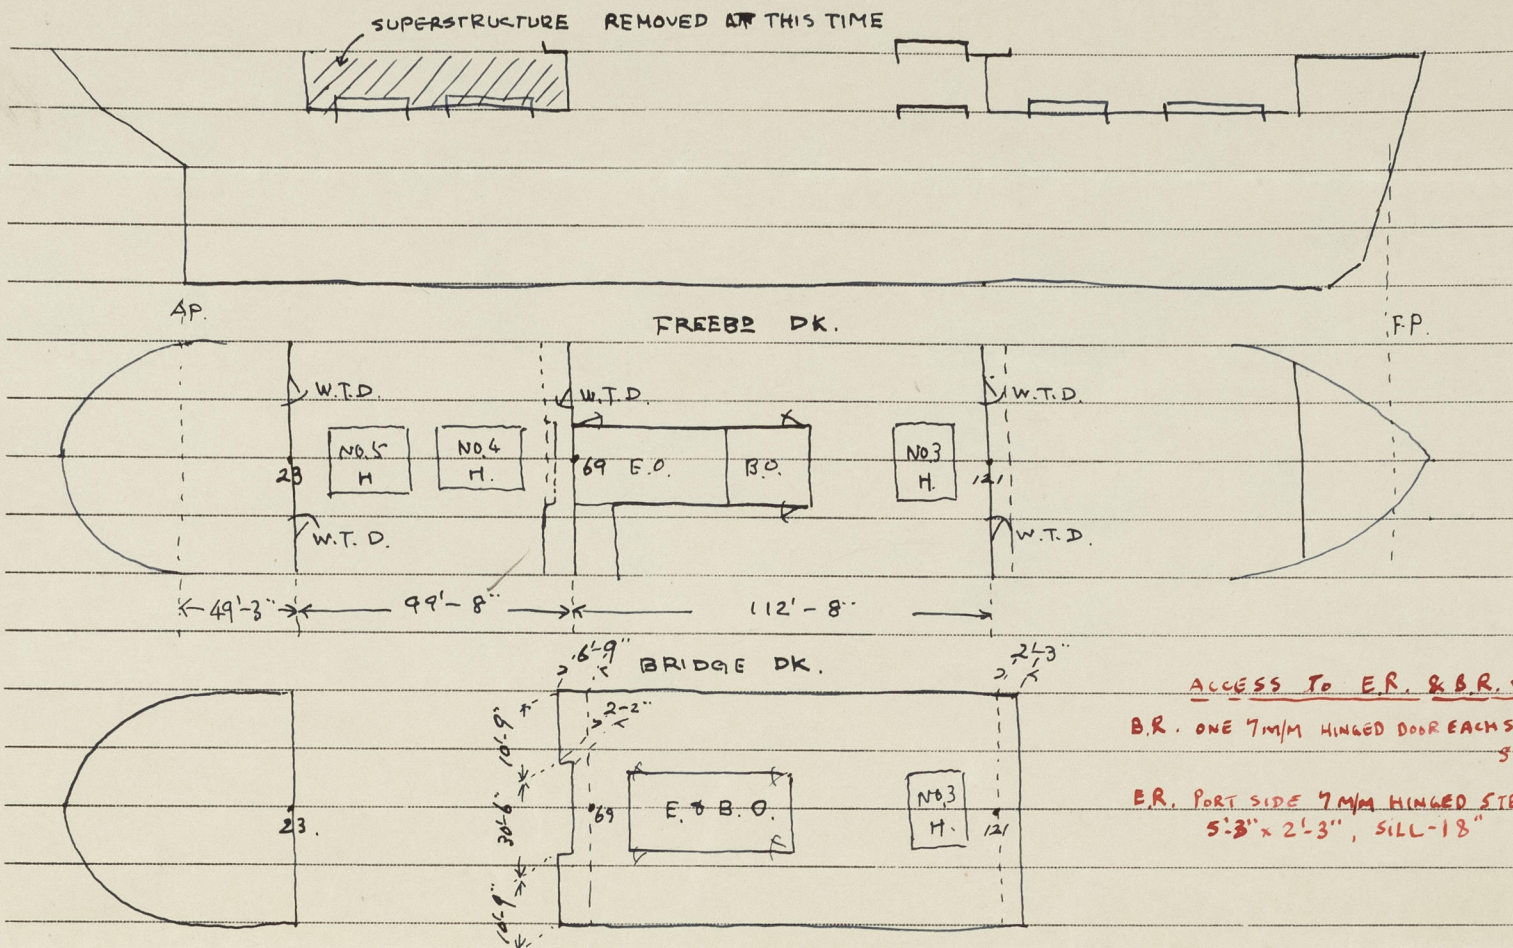 SUPERSTRUCTURE REMOVED AT THIS TIME
A.P.
FREEBD DK.
F.P.
W.T.D.
W.T.D.
W.T.D.
NO.5
H
NO.4
H.
69 E.O.
B.O.
NO.3
H.
23
121
W.T.D.
W.T.D.
49'-3"
99'-8"
112'-8"
6'-9"
BRIDGE DK.
2'-3"
2-2"
10'-9"
30'-6"
10'-9"
23.
69
E. & B.O.
NO,3
H.
121
ACCESS TO E.R. & B.R.
B.R. ONE 7 M/M HINGED DOOR EACH S
S
E.R. PORT SIDE 7 M/M HINGED STE
5'-3" x 2'-3", SILL-18"